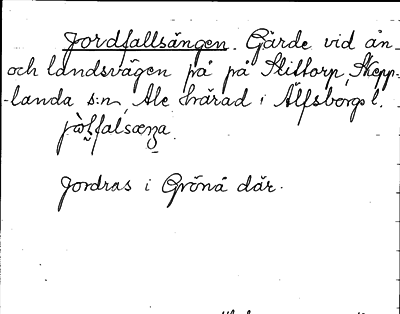 Jordfallsängen. Gärde vid ån
och landsvägen på på Slittorp, Skepp-
-landa s:n, Ale härad i Älfsborgs l.
Jordras i Grönå där.